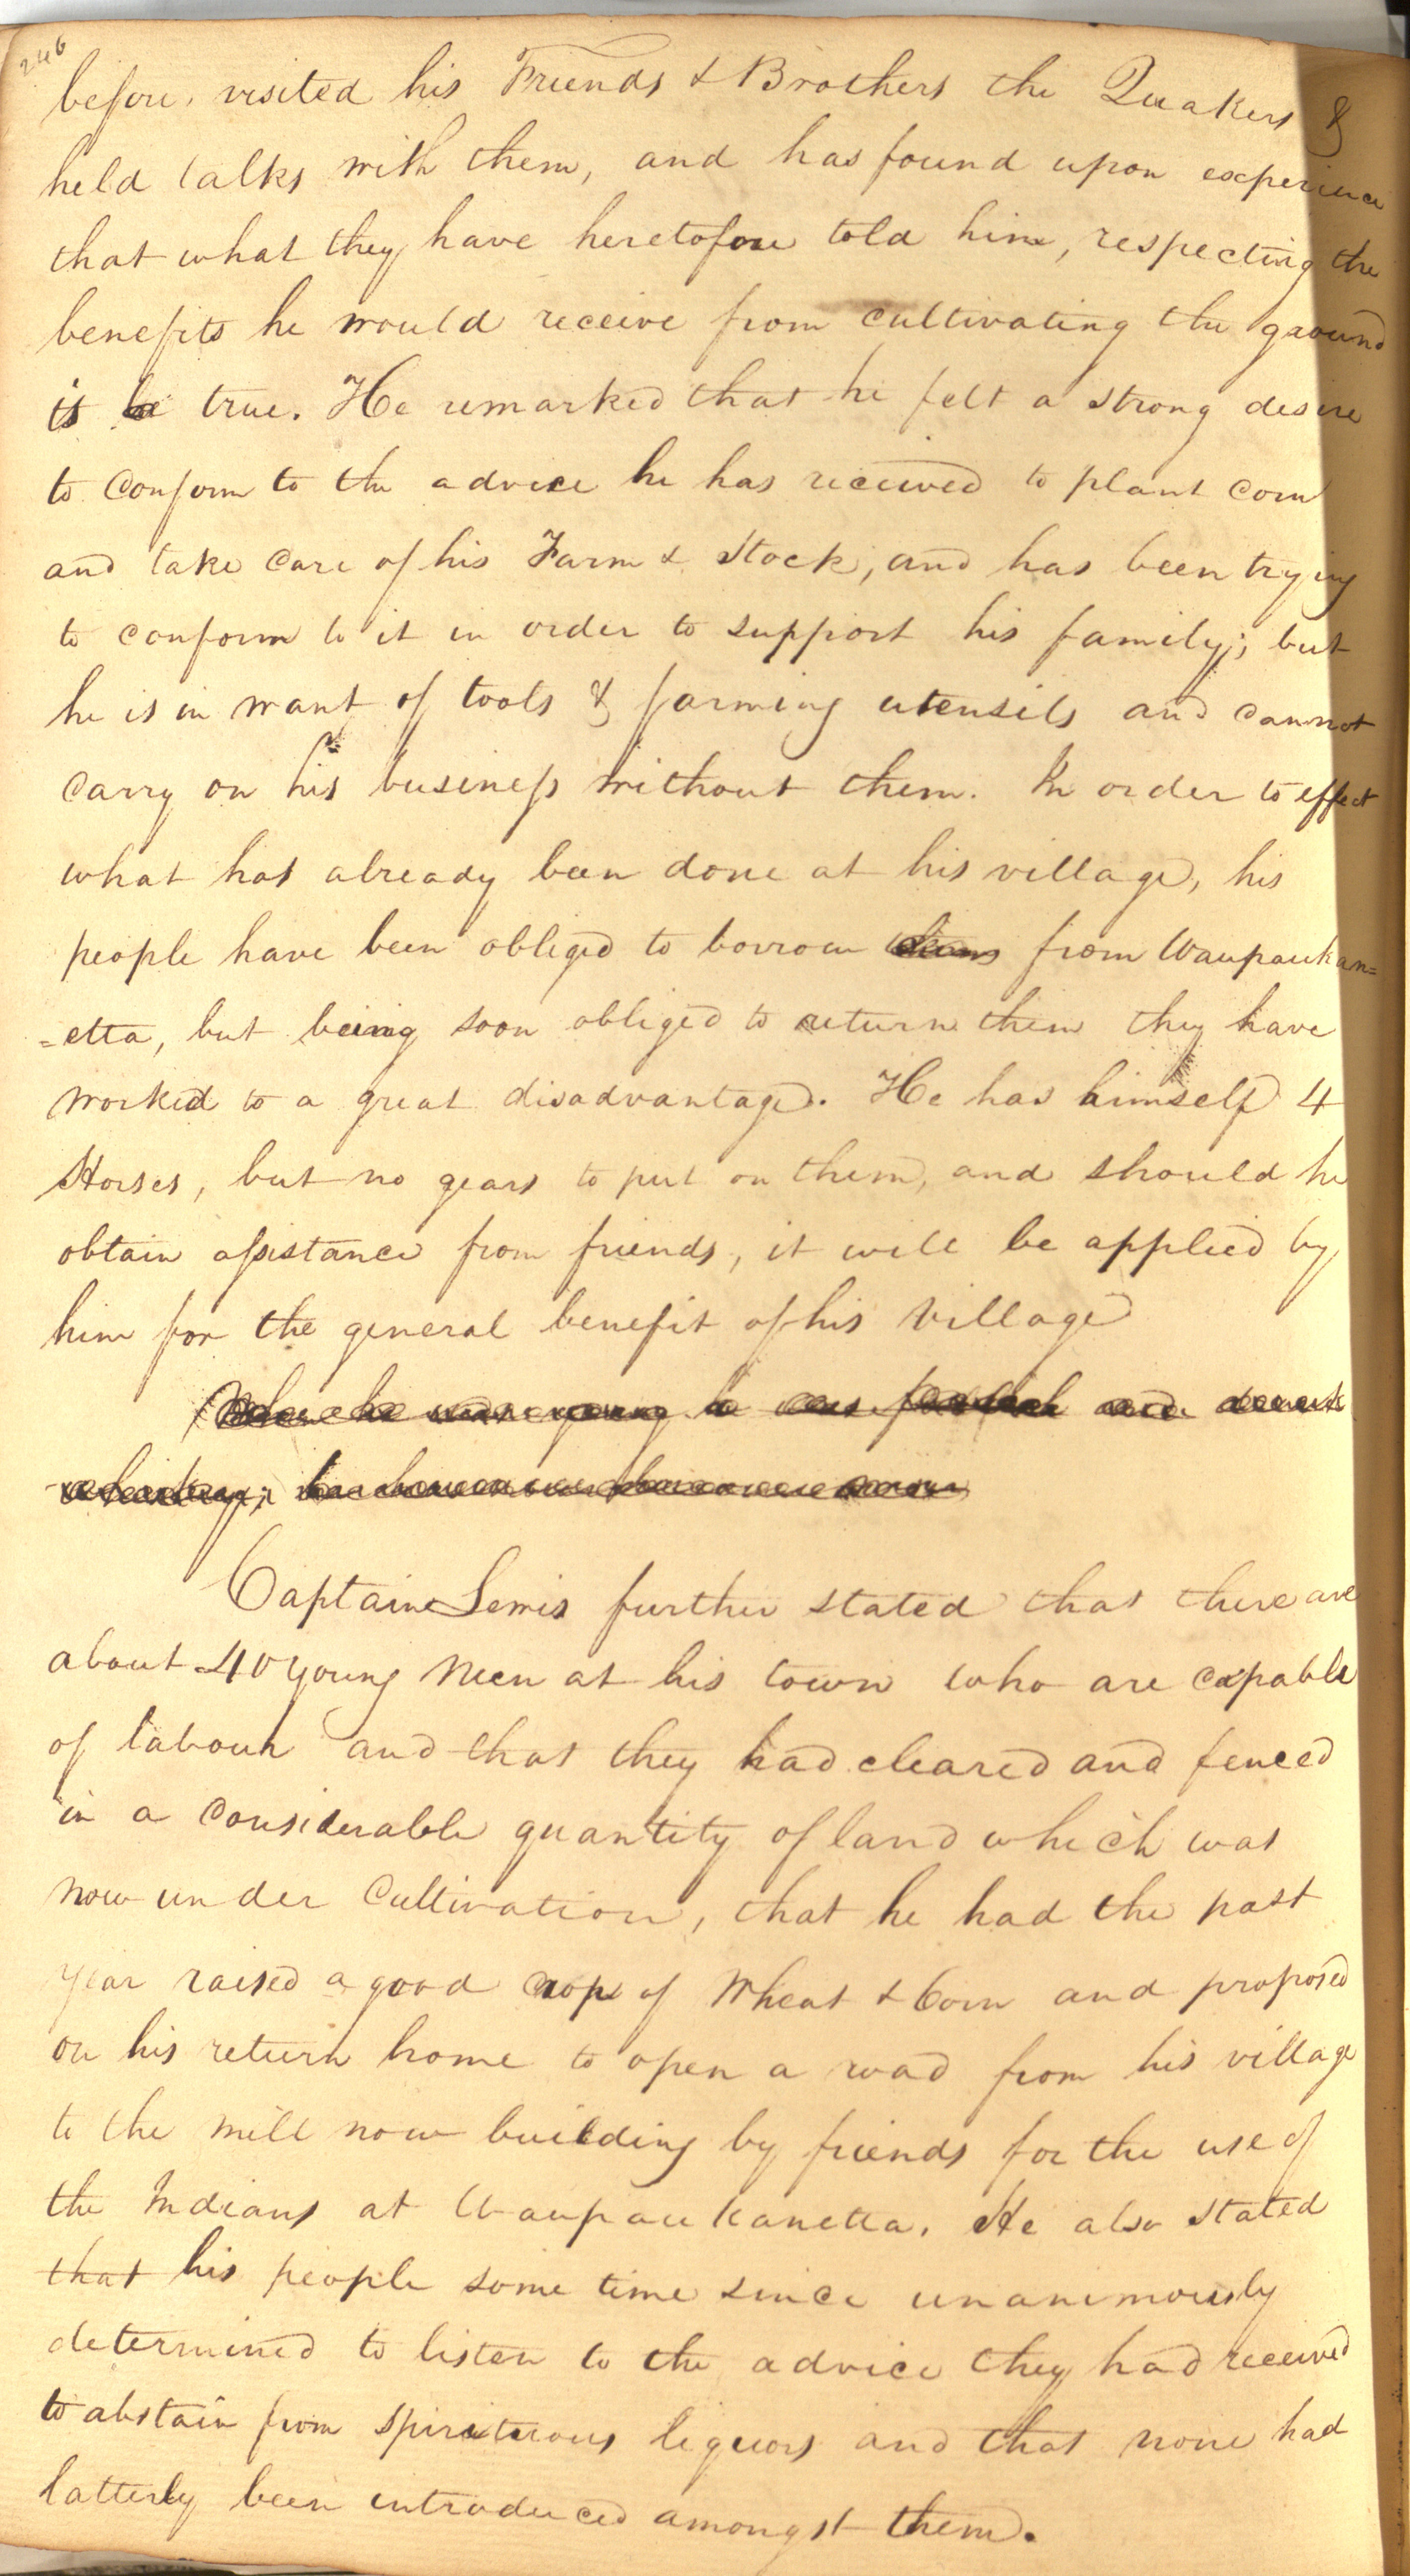 246
before, visited his Friends & Brothers the Quakers &
held talks with them, and has found upon experience
that what they have heretofore told him, respecting the
benefits he would receive from cultivating the ground
is true. He remarked that he felt a strong desire
to conform to the advice he has received to plant corn
and take care of his Farm & Stock, and has been trying
to conform to it in order to support his family; but
he is in want of tools & farming utensils and cannot
carry on his business without them. In order to effect
what has already been done at his village, his
people have been obliged to borrow from Waupaukan=
=etta, but being soon obliged to return them they have
worked to a great disadvantage. He has himself 4
Horses, but no gears to put on them, and should he
obtain assistance from friends, it will be applied by
him for the general benefit of his Village
When he was young he was foolish and drank
whiskey;
Captain Lewis further stated that there are
about 40 young Men at his town who are capable
of labour and that they had cleared and fenced
in a considerable quantity of land which was
now under Cultivation, that he had the past
year raised a good crop of Wheat & Corn and proposed
on his return home to open a road from his village
to the mill now building by friends for the use of
the Indians at Waupaukanetta. He also stated
that his people some time since unanimously
determined to listen to the advice they had received
to abstain from spirituous liquors and that none had
latterly been introduced amongst them.